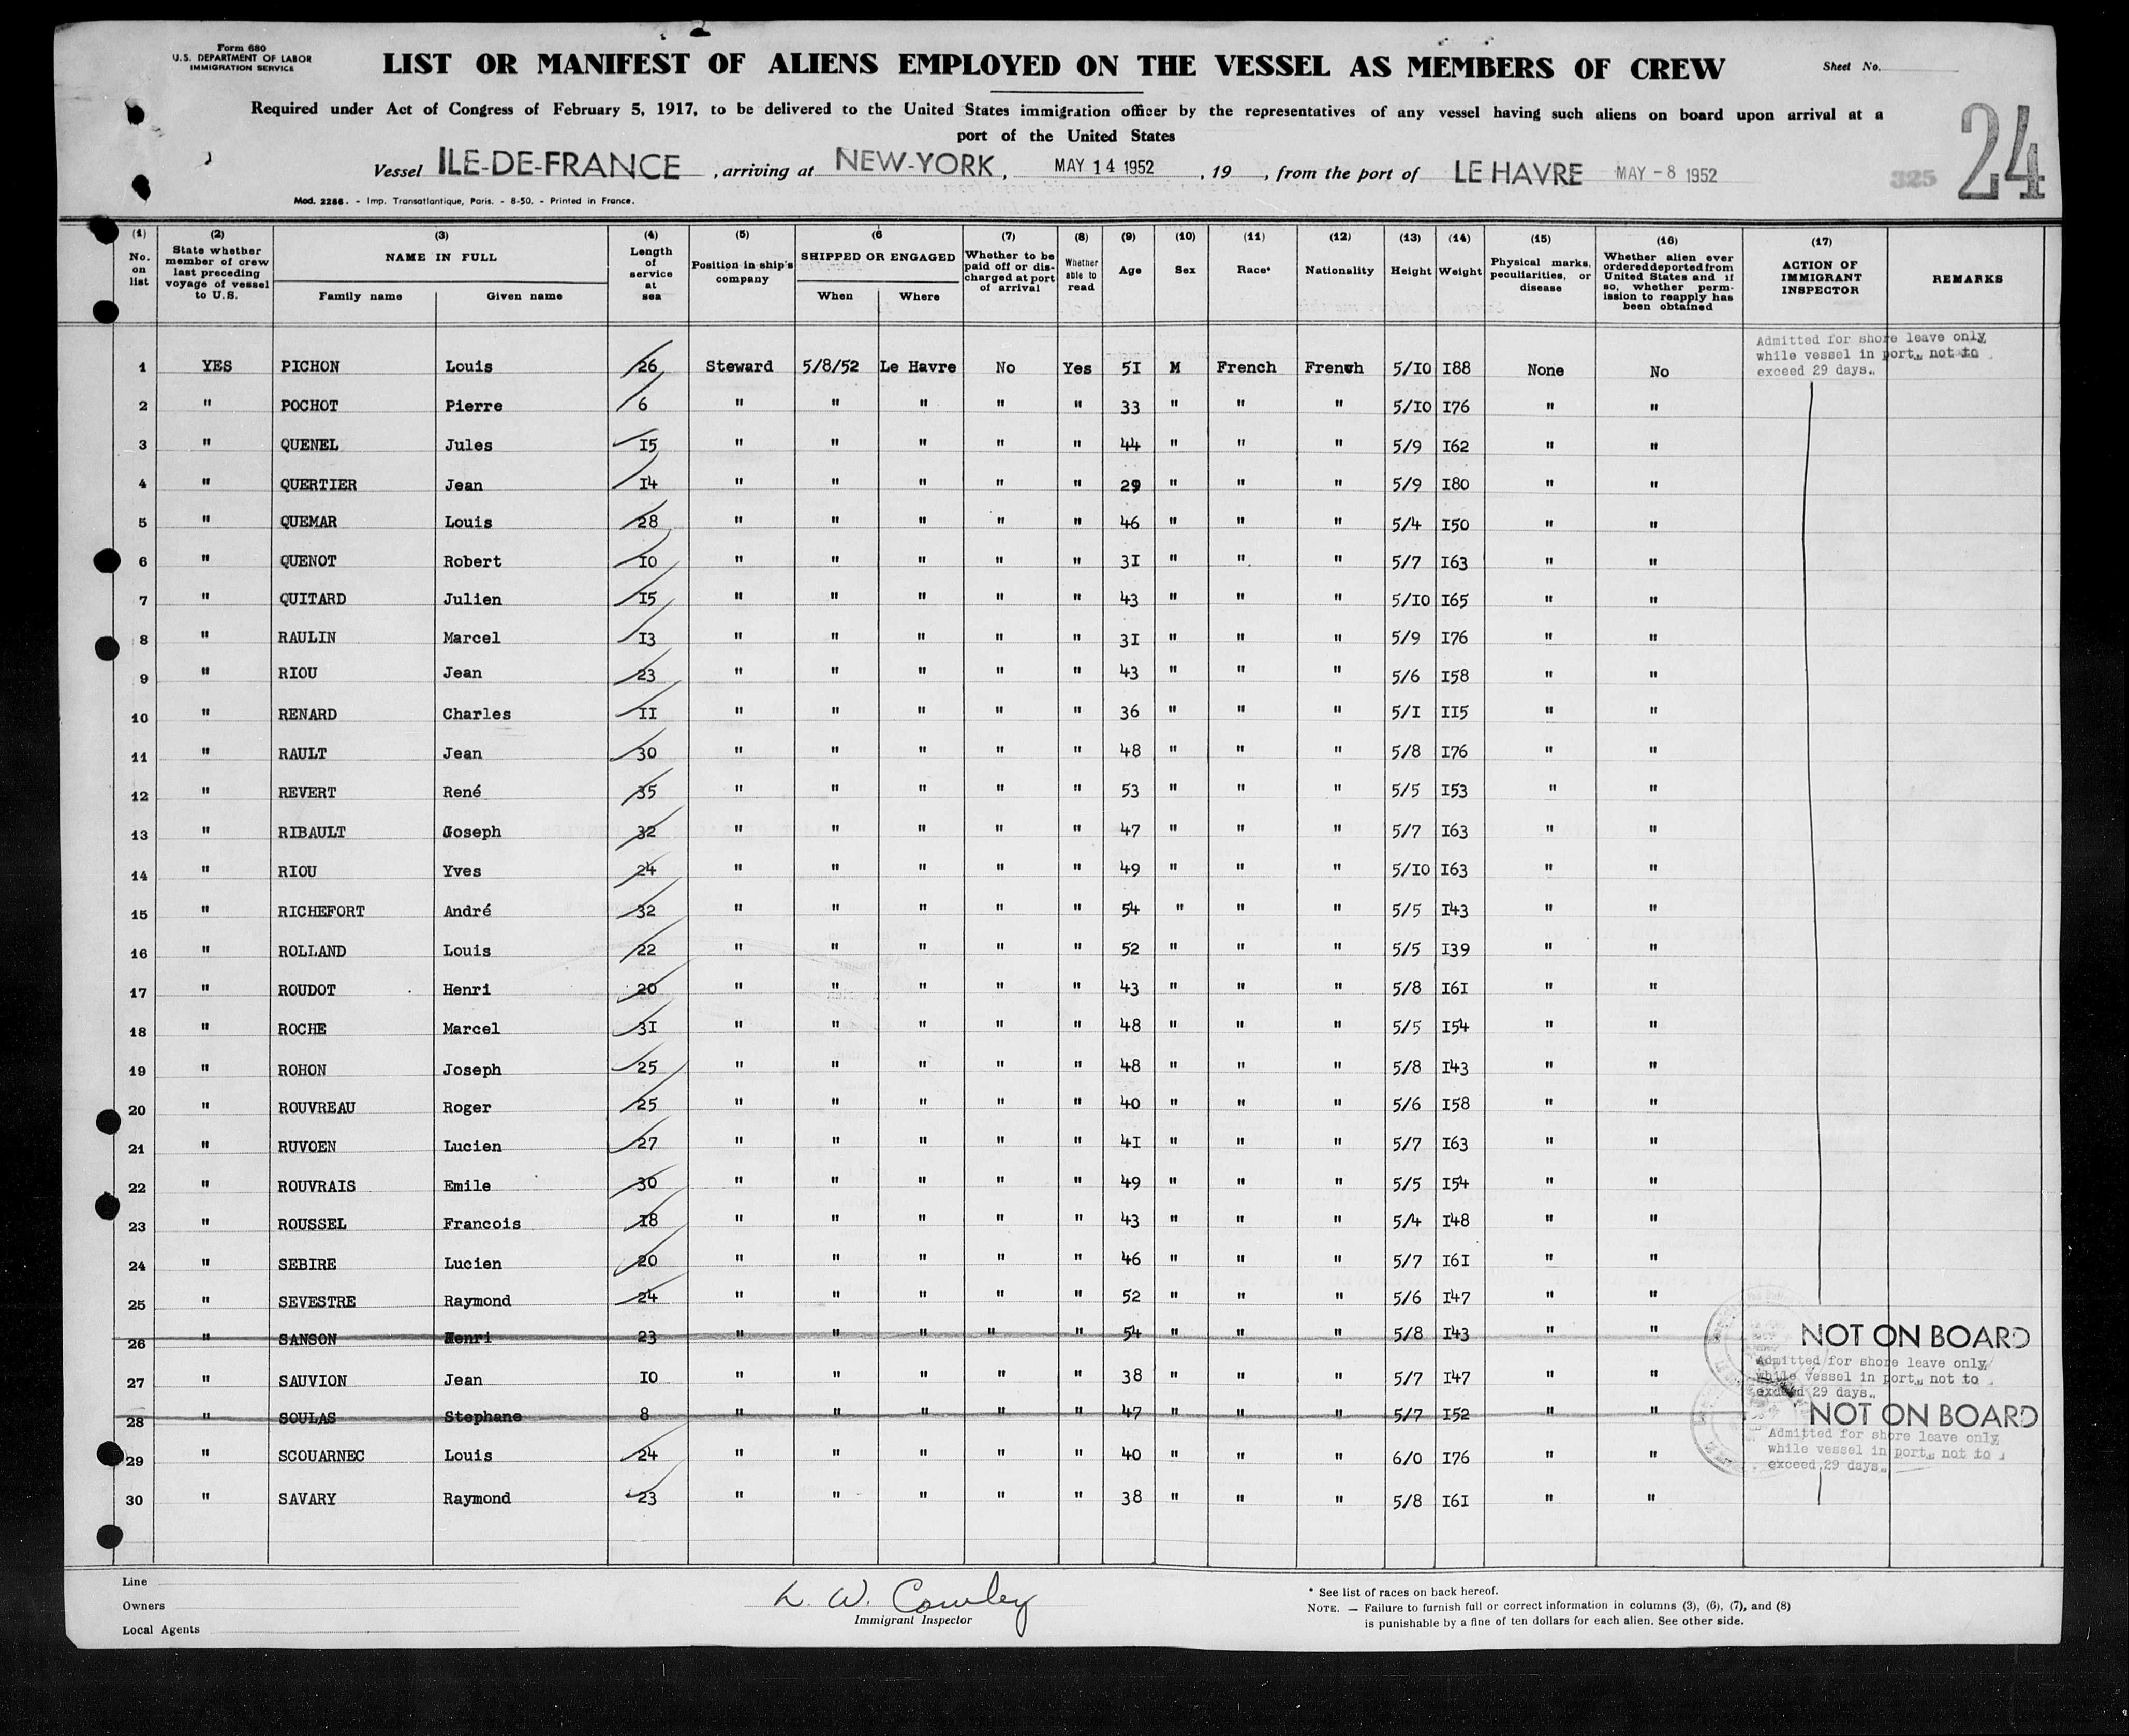 Form 680
U.S. DEPARTMENT OF LABOR
IMMIGRATION SERVICE
LIST OR MANIFEST OF ALIENS EMPLOYED ON THE VESSEL AS MEMBERS OF CREW
Sheet No.
Required under Act of Congress of February 5, 1917, to be delivered to the United States immigration officer by the representatives of any vessel having such aliens on board upon arrival at a
port of the United States
24
Vessel ILE-DE-FRANCE, arriving at NEW-YORK, MAY 14 1952, 19 , from the port of LE HAVRE MAY - 8 1952
325
Mod. 2266. - Imp. Transatlantique, Paris. - 8-50. - Printed in France.
(1) No. on list (2) State whether member of crew last preceding voyage of vessel to U.S. (3) NAME IN FULL Family name Given name (4) Length of service at sea (5) Position in ship's company (6 SHIPPED OR ENGAGED When Where (7) Whether to be paid off or discharged at port of arrival (8) Whether able to read (9) Age (10) Sex (11) Race* (12) Nationality (13) Height (14) Weight (15) Physical marks, peculiarities, or disease (16) Whether alien ever ordered deported from United States and if so, whether permission to reapply has been obtained (17) ACTION OF IMMIGRANT INSPECTOR REMARKS
Admitted for shore leave only
while vessel in port, not to
exceed 29 days.
1 YES PICHON Louis 26 Steward 5/8/52 Le Havre No Yes 51 M French French 5/10 188 None No
2 " POCHOT Pierre 6 " " " " " 33 " " " 5/10 176 " "
3 " QUENEL Jules 15 " " " " " 44 " " " 5/9 162 " "
4 " QUERTIER Jean 14 " " " " " 29 " " " 5/9 180 " "
5 " QUEMAR Louis 28 " " " " " 46 " " " 5/4 150 " "
6 " QUENOT Robert 10 " " " " " 31 " " " 5/7 163 " "
7 " QUITARD Julien 15 " " " " " 43 " " " 5/10 165 " "
8 " RAULIN Marcel 13 " " " " " 31 " " " 5/9 176 " "
9 " RIOU Jean 23 " " " " " 43 " " " 5/6 158 " "
10 " RENARD Charles 11 " " " " " 36 " " " 5/1 115 " "
11 " RAULT Jean 30 " " " " " 48 " " " 5/8 176 " "
12 " REVERT René 35 " " " " " 53 " " " 5/5 153 " "
13 " RIBAULT Joseph 32 " " " " " 47 " " " 5/7 163 " "
14 " RIOU Yves 24 " " " " " 49 " " " 5/10 163 " "
15 " RICHEFORT André 32 " " " " " 54 " " " 5/5 143 " "
16 " ROLLAND Louis 22 " " " " " 52 " " " 5/5 139 " "
17 " ROUDOT Henri 20 " " " " " 43 " " " 5/8 161 " "
18 " ROCHE Marcel 31 " " " " " 48 " " " 5/5 154 " "
19 " ROHON Joseph 25 " " " " " 48 " " " 5/8 143 " "
20 " ROUVREAU Roger 25 " " " " " 40 " " " 5/6 158 " "
21 " RUVOEN Lucien 27 " " " " " 41 " " " 5/7 163 " "
22 " ROUVRAIS Emile 30 " " " " " 49 " " " 5/5 154 " "
23 " ROUSSEL Francois 18 " " " " " 43 " " " 5/4 148 " "
24 " SEBIRE Lucien 20 " " " " " 46 " " " 5/7 161 " "
25 " SEVESTRE Raymond 24 " " " " " 52 " " " 5/6 147 " "
26 " SANSON Henri 23 " " " " " 54 " " " 5/8 143 " " NOT ON BOARD
Admitted for shore leave only
while vessel in port, not to
exceed 29 days.
27 " SAUVION Jean 10 " " " " " 38 " " " 5/7 147 " "
28 " SOULAS Stephane 8 " " " " " 47 " " " 5/7 152 " " NOT ON BOARD
Admitted for shore leave only
while vessel in port, not to
exceed 29 days.
29 " SCOUARNEC Louis 24 " " " " " 40 " " " 6/0 176 " "
30 " SAVARY Raymond 23 " " " " " 38 " " " 5/8 161 " "
Line
Owners
Local Agents
L. W. Cowley
Immigrant Inspector
* See list of races on back hereof.
NOTE. — Failure to furnish full or correct information in columns (3), (6), (7), and (8)
is punishable by a fine of ten dollars for each alien. See other side.